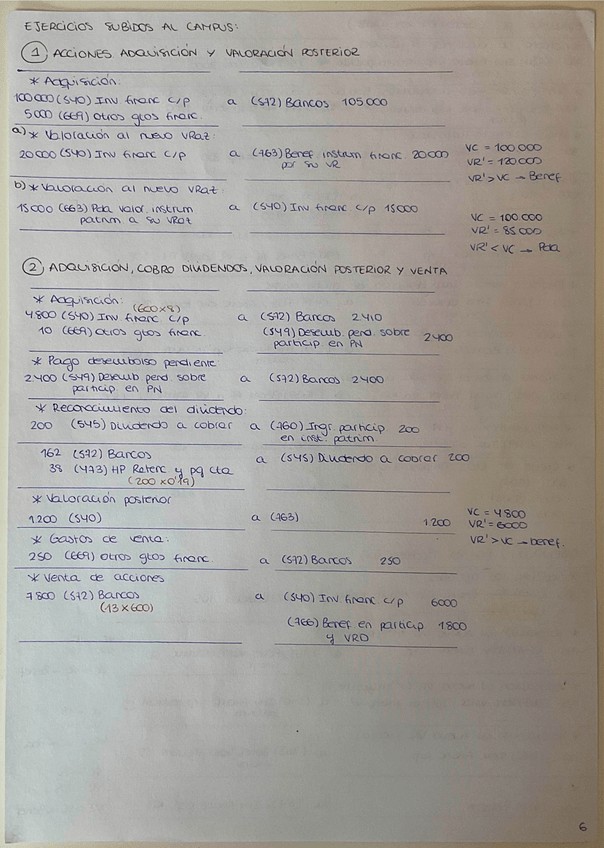 EJERCICIOS SUBIDOS AL CAMPUS:
1 ACCIONES ADQUISICIÓN Y VALORACIÓN POSTERIOR
* Adquisición:
100000 (540) Inv financ c/p a (572) Bancos 105000
5000 (669) otros gtos financ.
a) * Valoración al nuevo VRaz:
20000 (540) Inv financ c/p a (763) Benef instrum financ 20000
por su VR
VC = 100000
VR' = 120000
VR' > VC → Benef
b) * Valoración al nuevo VRaz:
15000 (663) Pda valor. instrum a (540) Inv financ c/p 15000
patrim a su VRaz
VC = 100000
VR' = 85000
VR' < VC → Pda
2 ADQUISICIÓN, COBRO DIVIDENDOS, VALORACIÓN POSTERIOR Y VENTA
* Adquisición:
(600x8)
4800 (540) Inv financ c/p a (572) Bancos 2410
10 (669) otros gtos financ. (549) Desemb. pend sobre 2400
particip en PN
* Pago desembolso pendiente
2400 (549) Desemb pend sobre a (572) Bancos 2400
particip. en PN
* Reconocimiento del dividendo:
200 (545) Dividendo a cobrar a (760) Ingr particip 200
en inst. patrim
162 (572) Bancos a (545) Dividendo a cobrar 200
38 (473) HP Retenc y pg cta
(200 x 0'19)
* Valoración posterior
1200 (540) a (763) 1200
VC = 4800
VR' = 6000
VR' > VC → benef.
* Gastos de venta:
250 (669) otros gtos financ. a (572) Bancos 250
* Venta de acciones
7800 (572) Bancos a (540) Inv financ c/p 6000
(13x600)
(766) Benef en particip 1800
y VRD
6